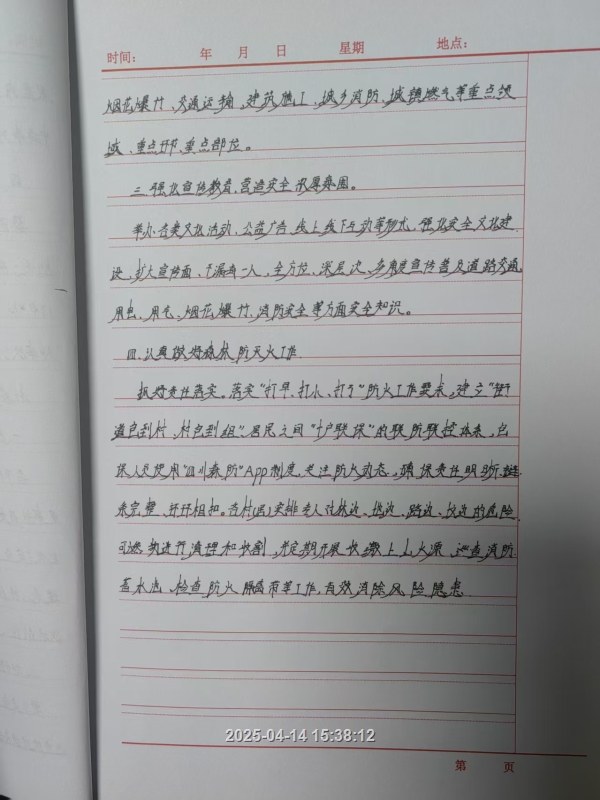 时间： 年 月 日 星期 地点：
烟花爆竹、交通运输、建筑施工、城乡消防、城镇燃气等重点领
域、重点环节、重点部位。
三、强化宣传教育，营造安全浓厚氛围。
举办各类文化活动、公益广告、线上线下互动等形式，强化安全文化建
设，扩大宣传面，不漏一人，全方位、深层次、多角度宣传普及道路交通、
用电、用气、烟花爆竹、消防安全等方面安全知识。
四、认真做好森林防灭火工作
抓好责任落实。落实"打早、打小、打了"防火工作要求，建立"街
道包到村，村包到组"居民之间"十户联保"的联防联控体系，包
保人员使用"四川森防"App制度，关注防火动态，确保责任明晰、链
条完整、环环相扣。各村(居)安排专人对林边、地边、路边、坟边的危险
可燃物进行清理和收割，并定期开展收缴上山火源，巡查消防
蓄水池、检查防火隔离带等工作，有效消除风险隐患
2025-04-14 15:38:12
第 页